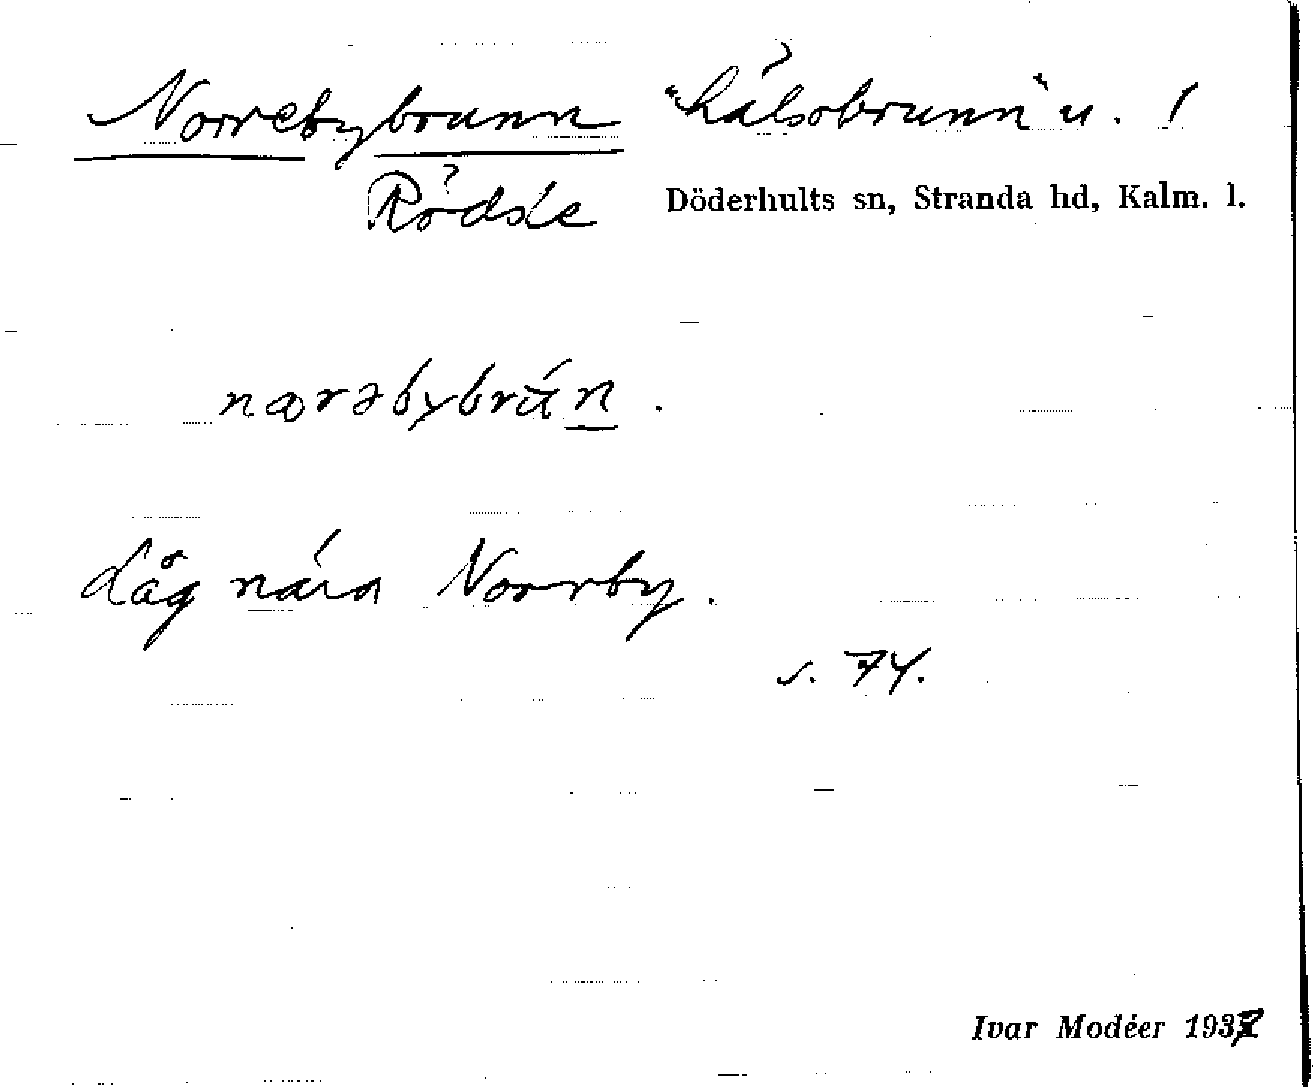 Norrebybrunn "hälsobrunn" u. 1
Rödsle Döderhults sn, Stranda hd, Kalm. l.
nꝏrəbybrún.
Låg nära Norrby.
s. 74.
Ivar Modéer 1937